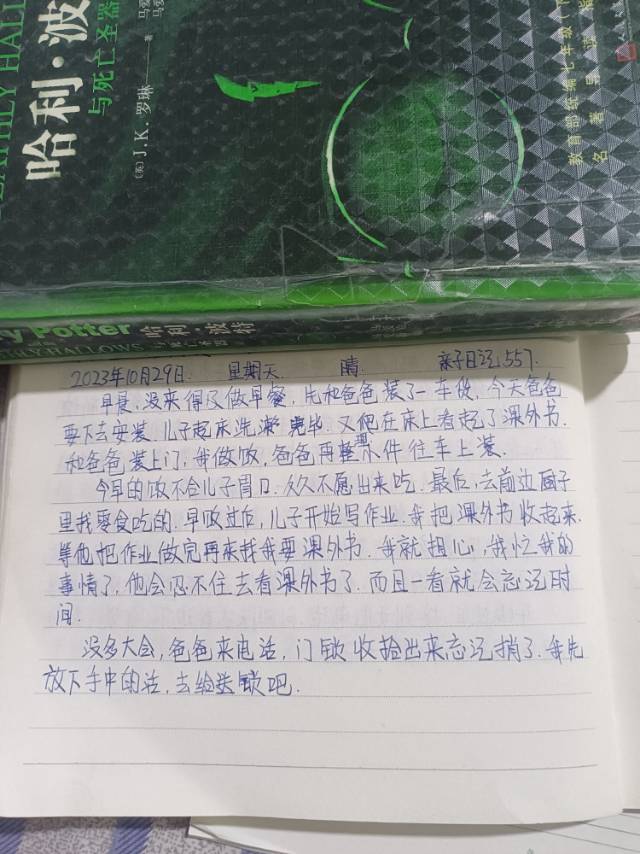 哈利·波
与死亡圣器
[英] J.K.罗琳 著
马爱
马爱
教育部统编七年级(下
名著导读指
哈利·波特
2023年10月29日 星期天 晴 亲子日记557.
早晨,没来得及做早餐,先和爸爸装了一车货,今天爸爸
要下去安装.儿子起床洗漱完毕.又爬在床上看起了课外书.
和爸爸装上门,我做饭,爸爸再整小件往车上装.
今早的饭不合儿子胃口.久久不愿出来吃.最后,去前边厨子
里找零食吃的.早饭过后,儿子开始写作业.我把课外书收起来.
等他把作业做完再来找我要课外书.我就担心,我忙我的
事情了,他会忍不住去看课外书了.而且一看就会忘记时
间.
没多大会,爸爸来电话,门锁收拾出来忘记捎了.我先
放下手中的活,去给送锁吧.